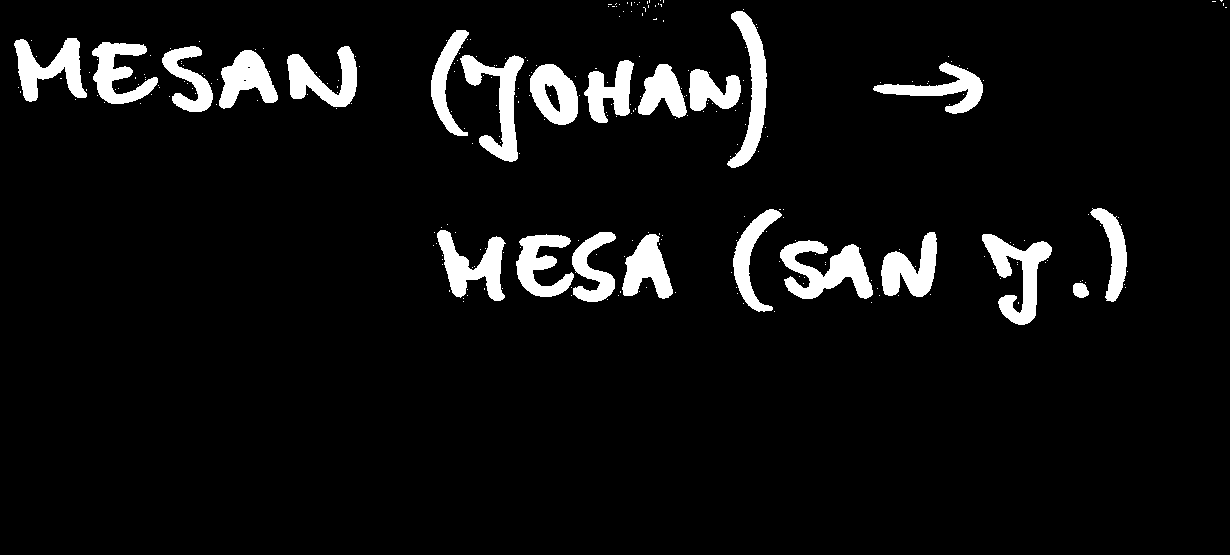 MESAN (JOHAN) →
MESA (SAN J.)